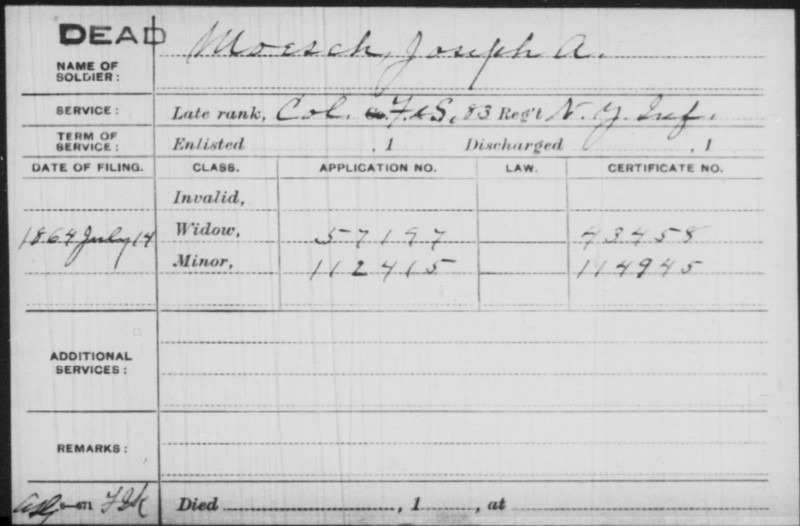 DEAD
NAME OF SOLDIER: Moesch, Joseph A.
SERVICE: Late rank, Col. F&S, 83 Reg't N. Y. Inf.
TERM OF SERVICE: Enlisted , 1 Discharged , 1
DATE OF FILING. CLASS. APPLICATION NO. LAW. CERTIFICATE NO.
Invalid,
1864 July 14 Widow, 57197 43458
Minor, 112415 114945
ADDITIONAL SERVICES:
REMARKS:
Died , 1 , at